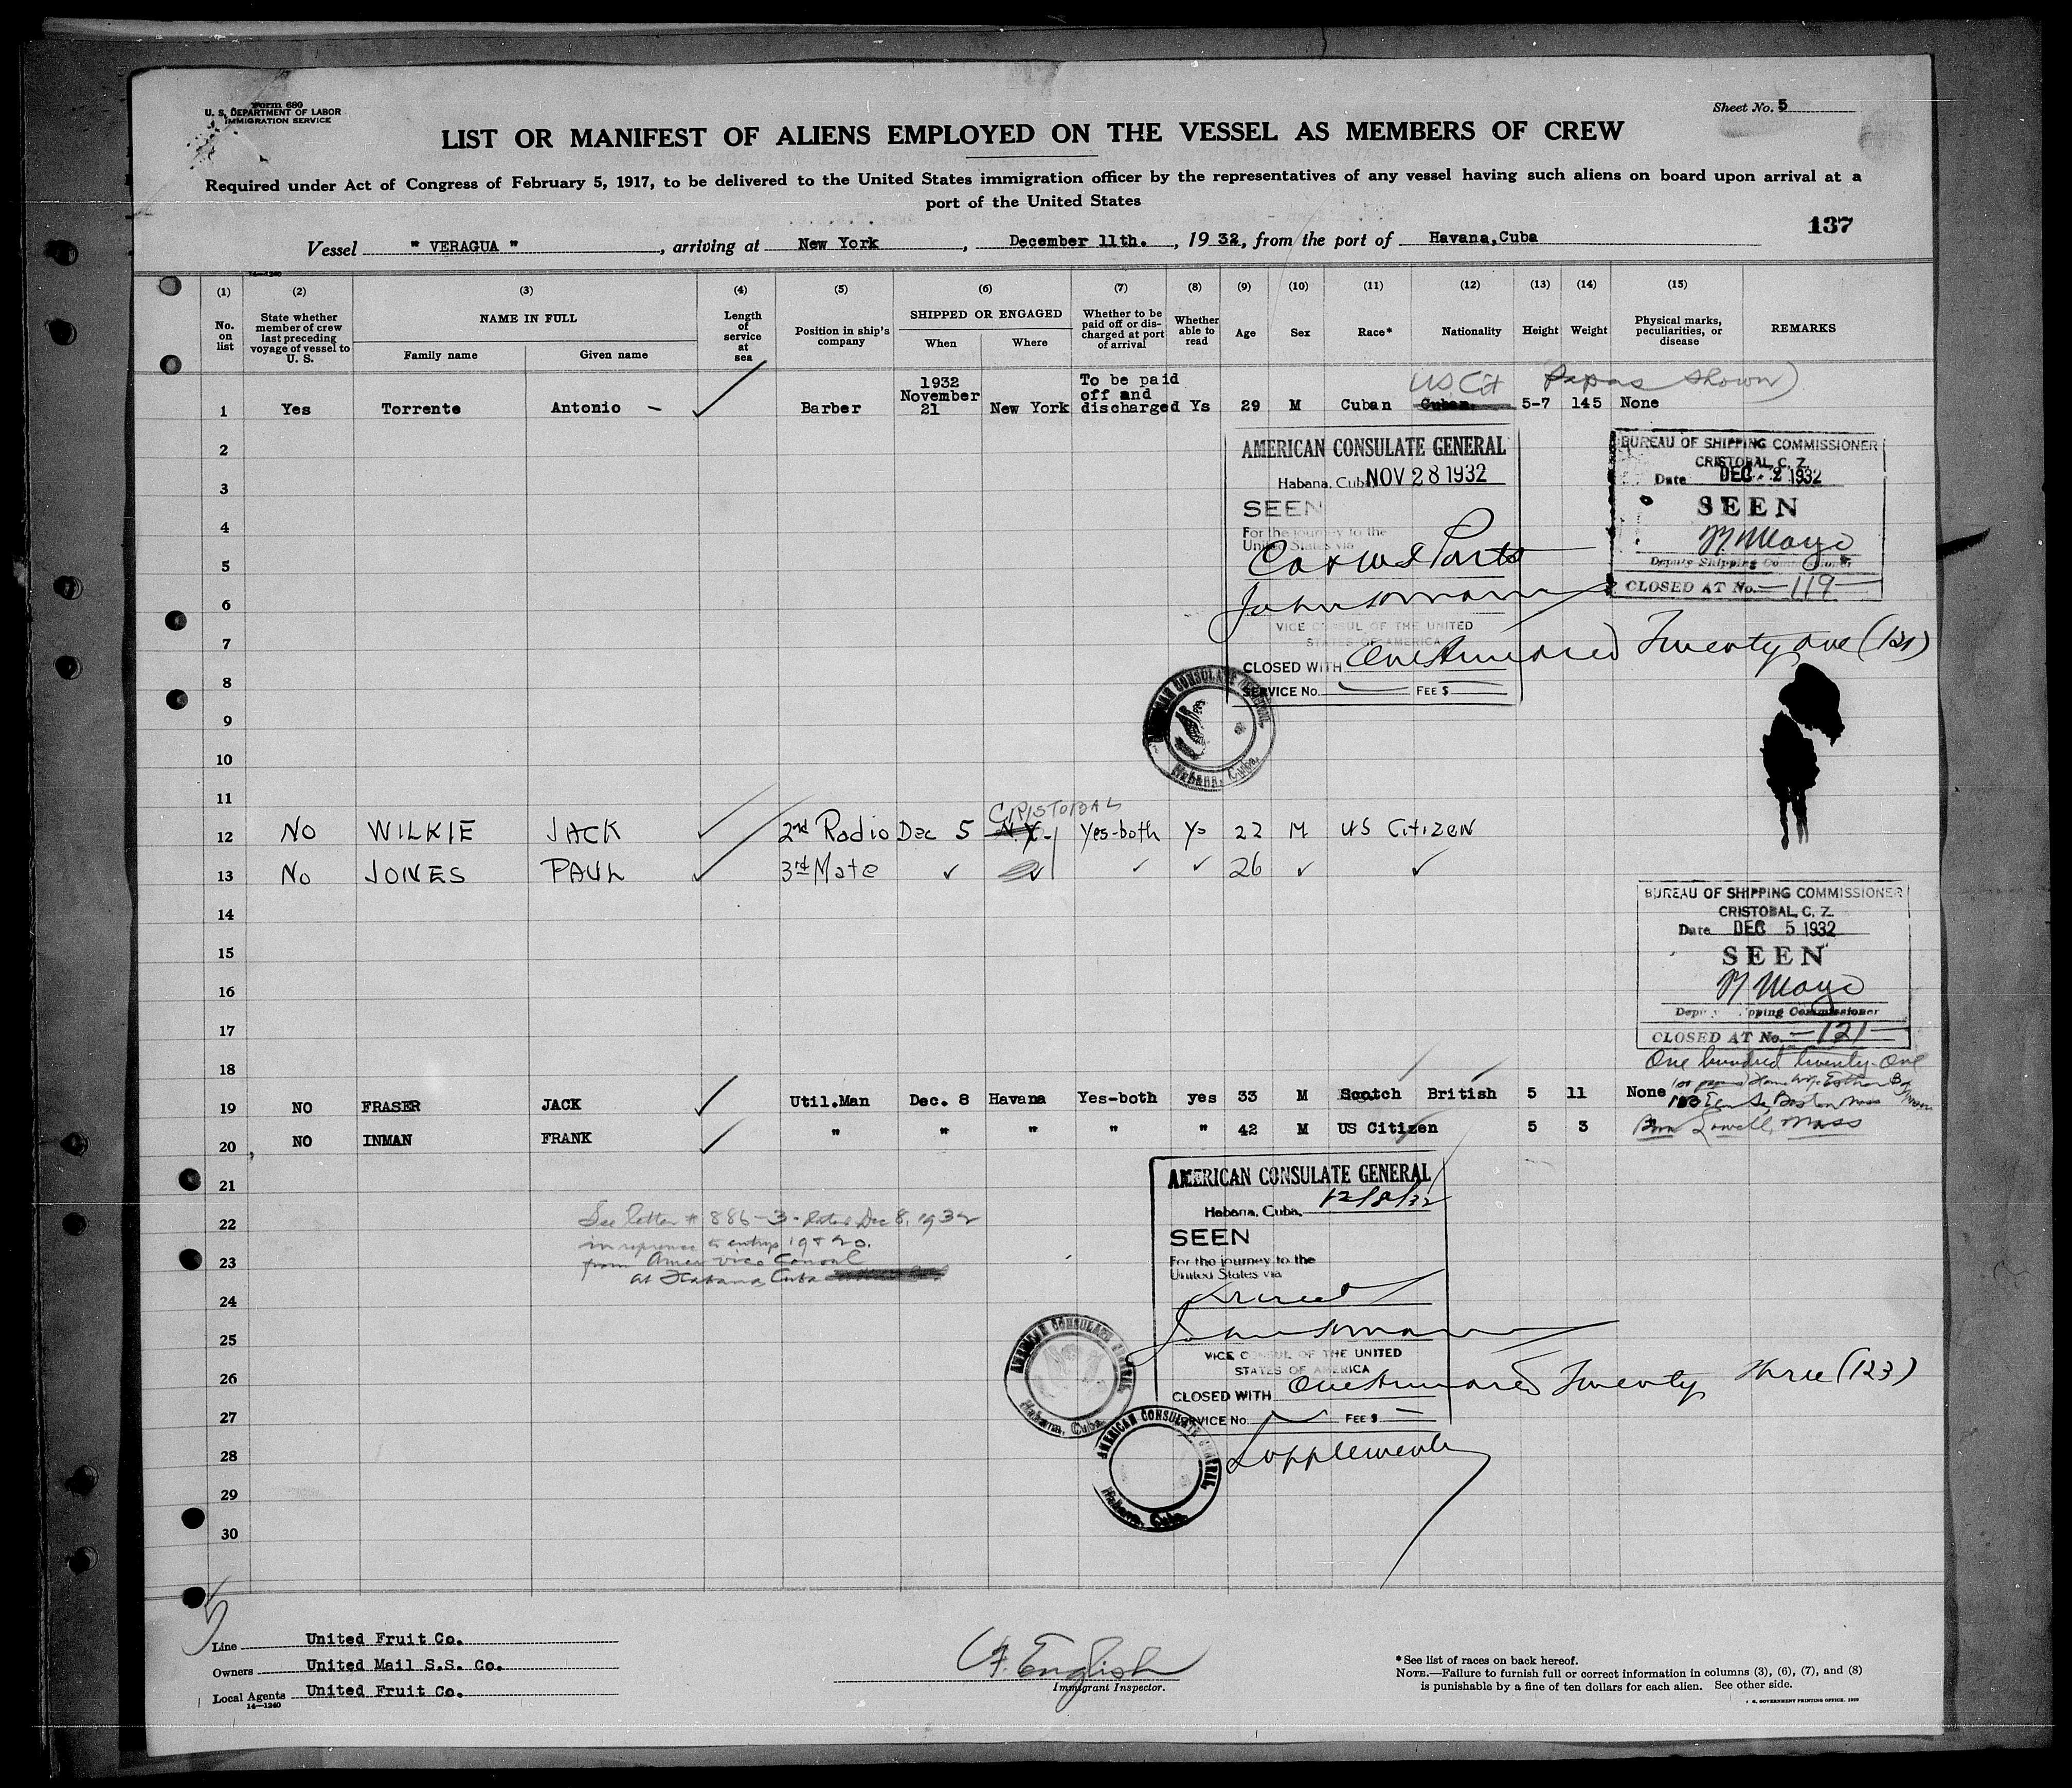 Form 680
U. S. DEPARTMENT OF LABOR
IMMIGRATION SERVICE
Sheet No. 5
LIST OR MANIFEST OF ALIENS EMPLOYED ON THE VESSEL AS MEMBERS OF CREW
Required under Act of Congress of February 5, 1917, to be delivered to the United States immigration officer by the representatives of any vessel having such aliens on board upon arrival at a
port of the United States
137
Vessel " VERAGUA ", arriving at New York, December 11th., 1932, from the port of Havana, Cuba
14—1240
(1) (2) (3) (4) (5) (6) (7) (8) (9) (10) (11) (12) (13) (14) (15)
No. on list
State whether member of crew last preceding voyage of vessel to U. S.
NAME IN FULL
Family name
Given name
Length of service at sea
Position in ship's company
SHIPPED OR ENGAGED
When
Where
Whether to be paid off or discharged at port of arrival
Whether able to read
Age
Sex
Race*
Nationality
Height
Weight
Physical marks, peculiarities, or disease
REMARKS
US Cit Papers shown)
1 Yes Torrente Antonio — Barber 1932 November 21 New York To be paid off and discharged Ys 29 M Cuban Cuban 5-7 145 None
2
3
4
5
6
7
8
9
10
11
AMERICAN CONSULATE GENERAL
Habana, Cuba NOV 28 1932
SEEN
For the journey to the
United States via
VICE CONSUL OF THE UNITED
STATES OF AMERICA
CLOSED WITH One Hundred Twenty one (121)
SERVICE No. FEE $
AMERICAN CONSULATE GENERAL
Habana, Cuba.
BUREAU OF SHIPPING COMMISSIONER
CRISTOBAL, C. Z.
Date DEC. 2 1932
SEEN
Mayo
Deputy Shipping Commissioner
CLOSED AT No. —119—
CRISTOBAL
12 No WILKIE JACK 2nd Radio Dec 5 N.Y. Yes-both Ys 22 M US Citizen
13 No JONES PAUL 3rd Mate 26
14
15
16
17
18
BUREAU OF SHIPPING COMMISSIONER
CRISTOBAL, C. Z.
Date DEC 5 1932
SEEN
Mayo
Deputy Shipping Commissioner
CLOSED AT No. —121—
One hundred twenty-One
19 NO FRASER JACK Util.Man Dec. 8 Havana Yes-both yes 33 M Scotch British 5 11 None
Boston Mass
20 NO INMAN FRANK " " " " " 42 M US Citizen 5 3 Born Lowell, Mass
21
22
23
24
25
26
27
28
29
30
See letter # 886-3- dated Dec 8, 1932
in reference to entrys 19 & 20.
from Amer Vice Consul
at Habana, Cuba
AMERICAN CONSULATE GENERAL
Habana, Cuba, 12/8/32
SEEN
For the journey to the
United States via
Direct
VICE CONSUL OF THE UNITED
STATES OF AMERICA
CLOSED WITH One Hundred Twenty three (123)
SERVICE No. FEE $ —
AMERICAN CONSULATE GENERAL
Habana, Cuba.
AMERICAN CONSULATE GENERAL
Habana, Cuba.
Line United Fruit Co.
Owners United Mail S.S. Co.
Local Agents United Fruit Co.
14—1240
English
Immigrant Inspector.
*See list of races on back hereof.
NOTE.—Failure to furnish full or correct information in columns (3), (6), (7), and (8)
is punishable by a fine of ten dollars for each alien. See other side.
GOVERNMENT PRINTING OFFICE